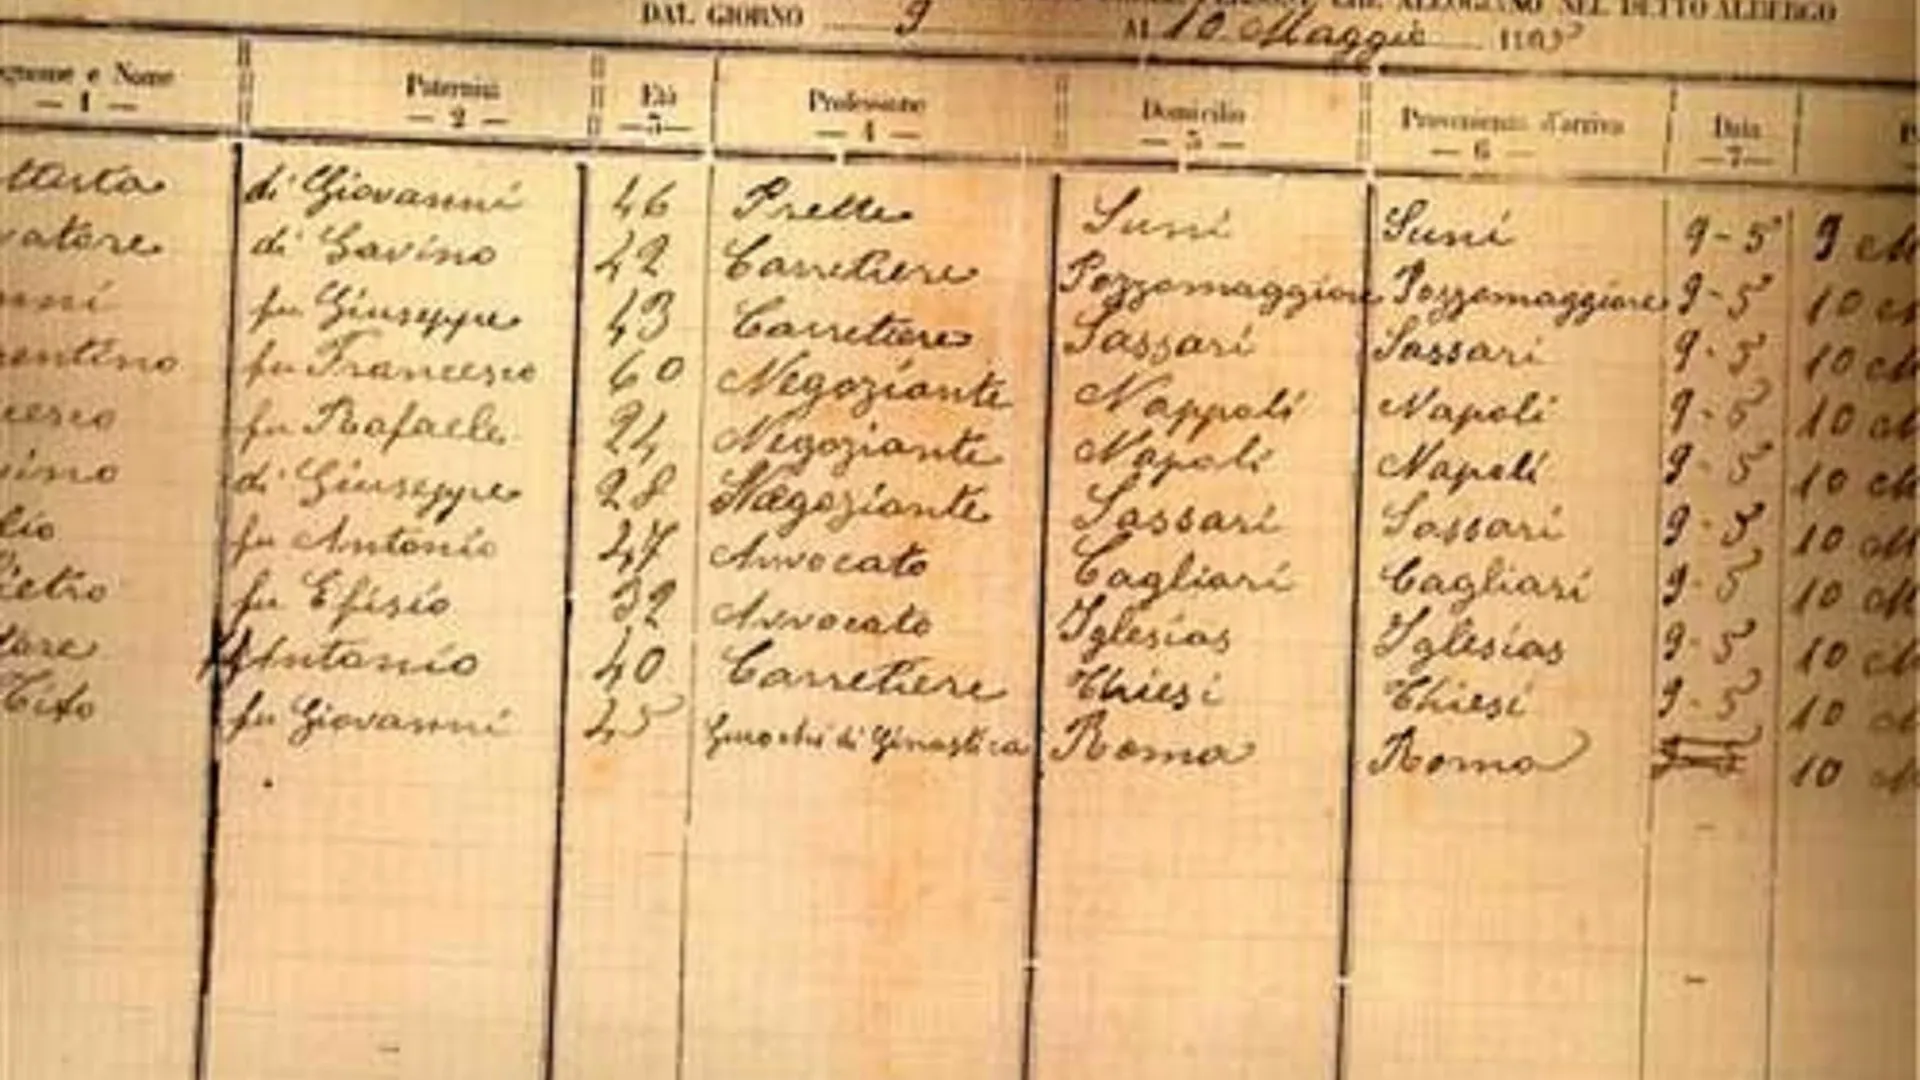 CHE ALLOGIANO NEL DETTO ALBERGO
DAL GIORNO 9 AL 10 Maggio
e Nome Paternità Età Professione Domicilio Provenienza d'arriva Data
— 1 — — 2 — — 3 — — 4 — — 5 — — 6 — — 7 —
di Giovanni 46 Prette Suni Suni 9-5 9 M
vatore di Gavino 42 Carretiere Pozzomaggiore Pozzomaggiore 9-5 10 M
nni fu Giuseppe 43 Carretiere Sassari Sassari 9-5 10 M
entino fu Francesco 60 Negoziante Nappoli Napoli 9-5 10 M
cesco fu Rafaele 24 Negoziante Napoli Napoli 9-5 10 M
vino di Giuseppe 28 Negoziante Sassari Sassari 9-5 10 M
lio fu Antonio 47 Avvocato Cagliari Cagliari 9-5 10 M
Pietro fu Efisio 32 Avvocato Iglesias Iglesias 9-5 10 M
tore Antonio 40 Carretiere Thiesi Thiesi 9-5 10 M
Tito fu Giovanni 45 Giuochi di Ginastica Roma Roma 10 M